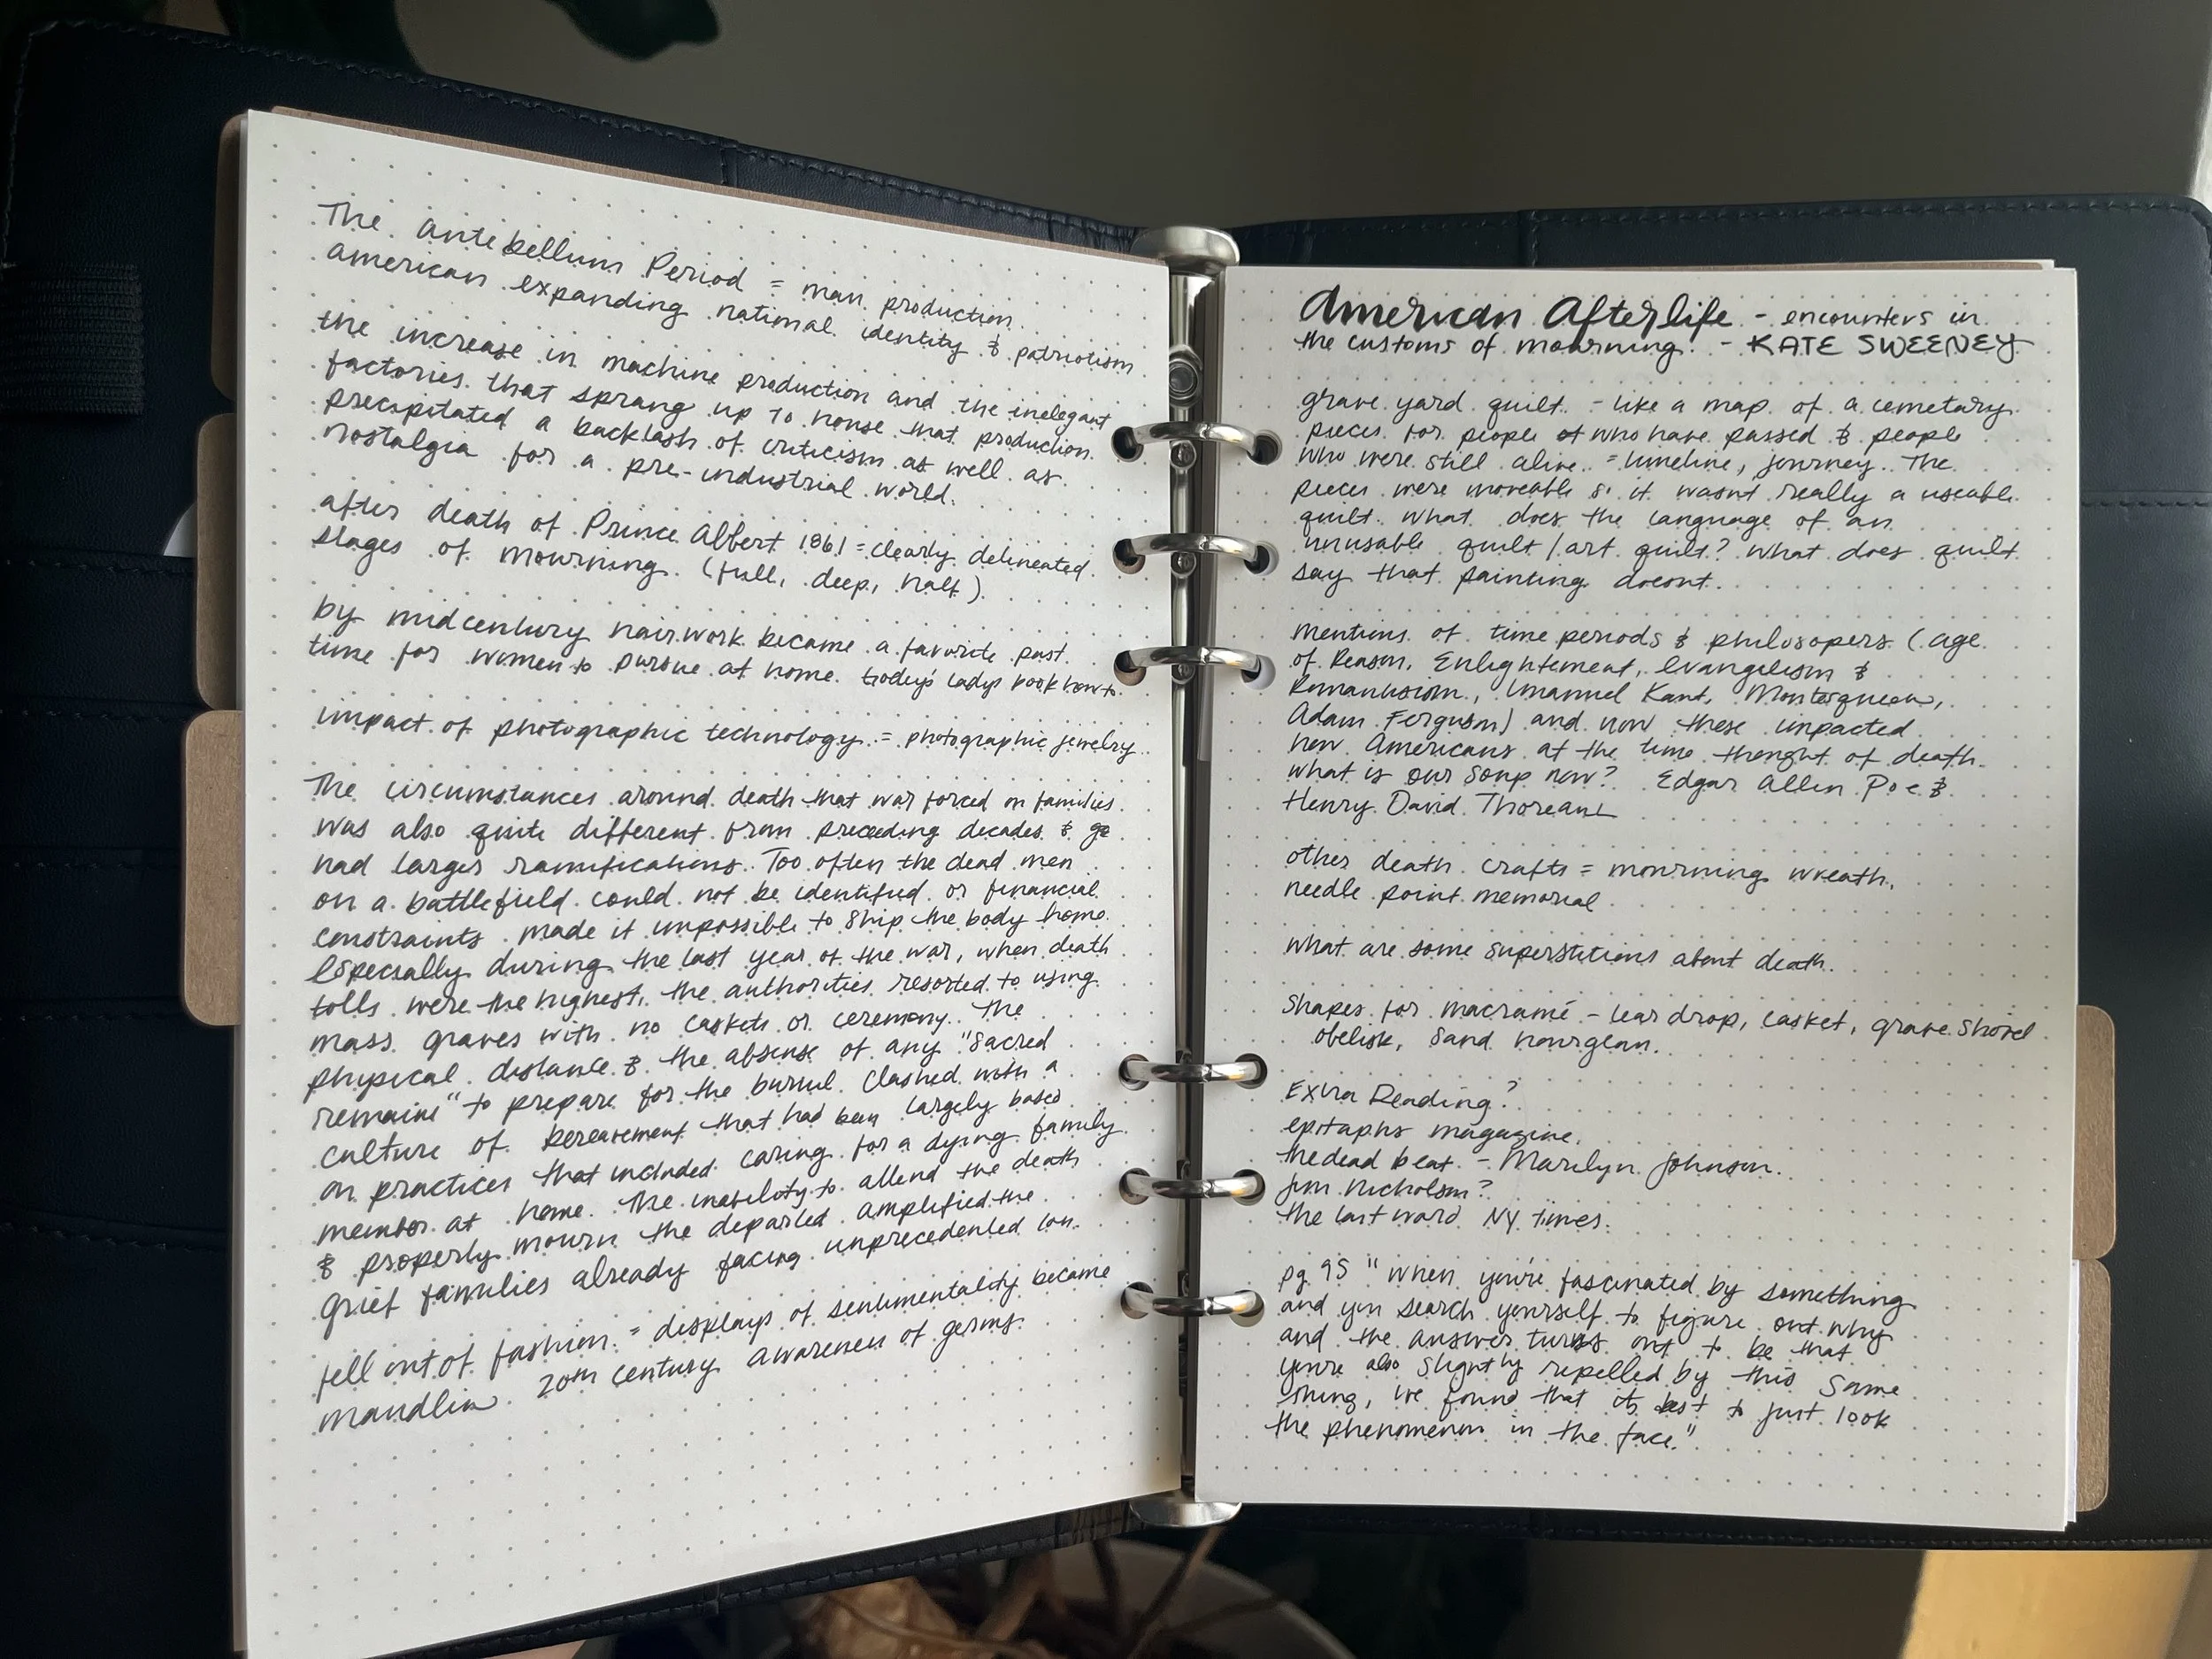 The antebellum Period = man. production.
american expanding national identity & patriotism
the increase in machine production and the inelegant
factories that sprang up to house that production
precipitated a backlash of criticism as well as
nostalgia for a pre-industrial world.
after death of Prince Albert 1861 = clearly delineated
stages of mourning. (full, deep, half).
by midcentury hairwork became a favorite past
time for women to pursue at home. Godey's Ladys book how to.
impact of photographic technology = photographic jewelry
The circumstances around death that war forced on families
was also quite different from preceeding decades &
had larger ramifications. Too often the dead men
on a battlefield could not be identified or financial
constraints made it impossible to ship the body home.
Especially during the last year of the war, when death
tolls were the highest, the authorities resorted to using
mass graves with no caskets or ceremony. The
physical distance & the absense of any "sacred
remains" to prepare for the burial clashed with a
culture of bereavement that had been largely based
on practices that included caring for a dying family
member at home. The inability to attend the death
& properly mourn the departed amplified the
grief families already facing unprecedented loss.
fell out of fashion = displays of sentimentality became
maudlin. 20th century awareness of germs.
American Afterlife - encounters in
the customs of mourning. - KATE SWEENEY
grave yard quilt - like a map of a cemetary.
pieces for people who have passed & people
who were still alive. = timeline, journey. The
pieces were moveable so it wasnt really a useable
quilt. What does the language of an
unusable quilt / art quilt? What does quilt
say that painting doesnt.
mentions of time periods & philosopers (age
of Reason, Enlightement, evangelism &
Romanticism, Imanuel Kant, Montesquieu,
Adam Ferguson) and how these impacted
how Americans at the time thought of death.
what is our soup now? Edgar Allen Poe &
Henry David Thoreau
other death crafts = mourning wreath,
needle point memorial
what are some superstitions about death.
Shapes for macramé - tear drop, casket, grave shovel
obelisk, sand hourglass.
Extra Reading?
epitaphs magazine.
the dead beat - Marilyn Johnson.
Jim Nicholson?
the last word NY times.
pg 95 "when you're fascinated by something
and you search yourself to figure out why
and the answer turns out to be that
you're also slightly repelled by this same
thing, ive found that its best to just look
the phenomenon in the face."